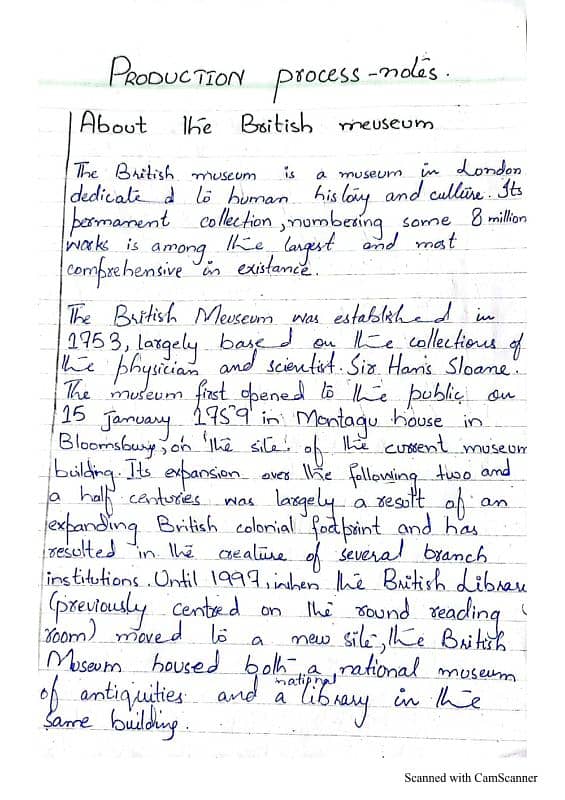 PRODUCTION process-notes.
About the British meuseum
The British museum is a museum in London
dedicate d to human history and culture. Its
permament collection, numbering some 8 million
works is among the largest and most
comprehensive in existance.
The British Meuseum was established in
1953, largely based on the collections of
the physician and scientist. Sir Hans Sloane.
The museum first opened to the public on
15 January 1959 in Montagu house in
Bloomsbury, on 'the site' of the current museum
building. Its expansion over the following two and
a half centuries was largely a result of an
expanding British colonial footprint and has
resulted in the creature of several branch
institutions. Until 1997, when the British Librar
(previously centred on the round reading
room) moved to a new site, the British
Museum housed both a national museum
of antiquities and a national library in the
same building.
Scanned with CamScanner